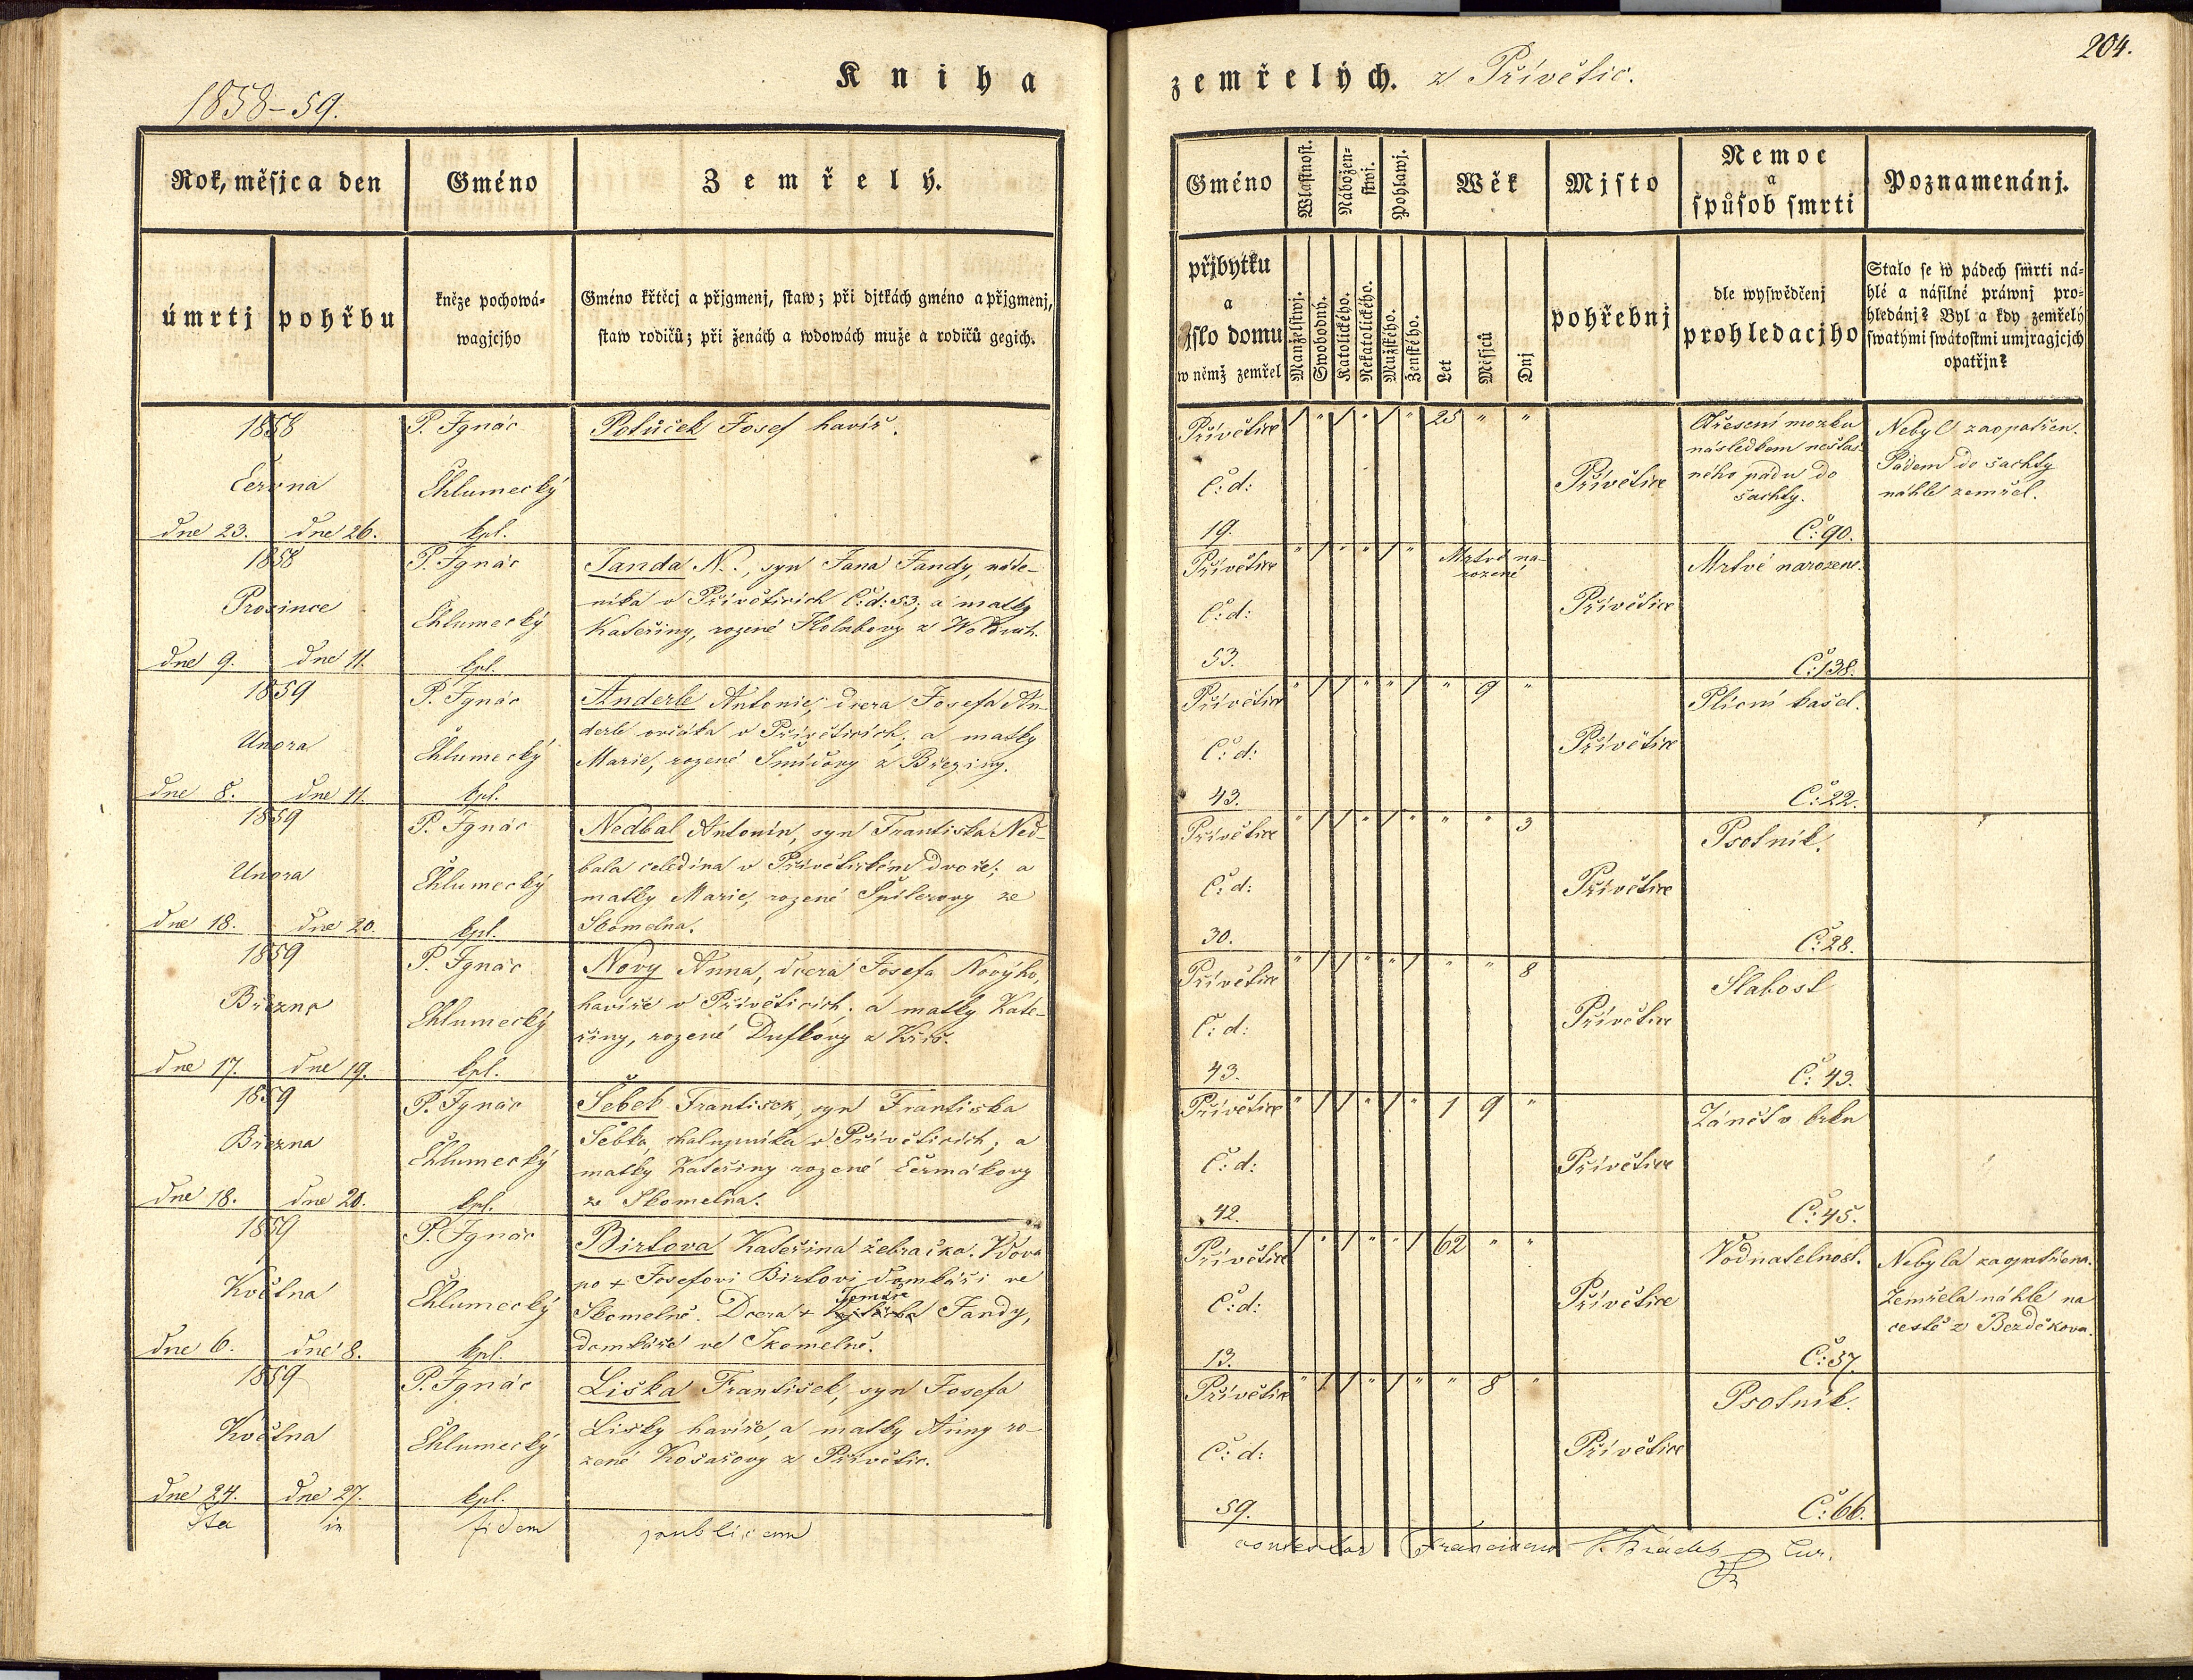 204.
Kniha zemřelých. z Přívětic.
1858-59.
Rok, měsjc a den
Gméno
Zemřelý.
Gméno
Wlastnost.
Nábožen=
stwj.
Pohlawj.
Wěk
Mjsto
Nemoc
a
spůsob smrti
Poznamenánj.
úmrtj
pohřbu
kněze pochowá=
wagjcjho
Gméno křtěcj a přjgmenj, staw; při djtkách gméno a přjgmenj,
staw rodičů; při ženách a wdowách muže a rodičů gegich.
přjbytku
a
čjslo domu
w němž zemřel
Manželstwj.
Swobodný.
Katolického.
Nekatolického.
Mužského.
Ženského.
Let
Měsjců
Dnj
pohřebnj
dle wyswědčenj
prohledacjho
Stalo se w pádech smrti ná=
hlé a násilné práwnj pro=
hledánj? Byl a kdy zemřelý
swatými swátostmi umjragjcjch
opatřjn?
1858
Června
dne 23. dne 26.
P. Ignác
Chlumecký
kpl.
Potůček Josef havíř.
Přívětice
Č: d:
19.
/ " / " / " 25 " "
Přívětice
Otřesení mozku
následkem nešťas-
ného pádu do
šachty.
Č: 90.
Nebyl zaopatřen.
Pádem do šachty
náhle zemřel.
1858
Prosince
dne 9. dne 11.
P. Ignác
Chlumecký
kpl.
Janda N., syn Jana Jandy, náde-
níka v Přívěticích Č: d: 53; a matky
Kateřiny, rozené Holubovy z Wolduch.
Přívětice
Č: d:
53.
Mrtvě na-
rozené
Přívětice
Mrtvě narozené.
Č: 138.
1859
Února
dne 8. dne 11.
P. Ignác
Chlumecký
kpl.
Anderle Antonie, dcera Josefa An-
derle ovčáka v Přívěticích; a matky
Marie, rozené Šmídovy z Březiny.
Přívětice
Č: d:
43.
" / / " " / " 9 "
Přívětice
Plícní kašel.
Č: 22.
1859
Února
dne 18. dne 20.
P. Ignác
Chlumecký
kpl.
Nedbal Antonín, syn Františka Ned-
bala čeledína v Přívětickém dvoře; a
matky Marie, rozené Špilerovy ze
Skomelna.
Přívětice
Č: d:
30.
" / / " / " " " 3
Přívětice
Psotník.
Č: 28.
1859
Března
dne 17. dne 19.
P. Ignác
Chlumecký
kpl.
Nový Anna, dcera Josefa Nového,
havíře v Přívěticích; a matky Kate-
řiny, rozené Duffkovy z Kříš.
Přívětice
Č: d:
43.
" / / " " / " " 8
Přívětice
Slabost
Č: 43.
1859
Března
dne 18. dne 20.
P. Ignác
Chlumecký
kpl.
Šebek František, syn Františka
Šebka, chalupníka v Přívěticích; a
matky Kateřiny rozené Čermákovy
ze Skomelna.
Přívětice
Č: d:
42.
" / / " / " 1 9 "
Přívětice
Zánět v krku
Č: 45.
1859
Května
dne 6. dne 8.
P. Ignác
Chlumecký
kpl.
Birlova Kateřina žebračka. Vdova
po + Josefovi Birlovi domkáři ve
Tomáše
Skomelně. Dcera + Jandy,
domkáře ve Skomelně.
Přívětice
Č: d:
13.
/ " / " " / 62 " "
Přívětice
Vodnatelnost.
Č: 57.
Nebyla zaopatřena.
Zemřela náhle na
cestě z Bezděkova.
1859
Května
dne 24. dne 27.
P. Ignác
Chlumecký
kpl.
Liška František, syn Josefa
Lišky havíře, a matky Anny ro-
zené Košařovy z Přívětic.
Přívětice
Č: d:
59.
" / / " / " " 8 "
Přívětice
Psotník.
Č: 66.
Ita in fidem publicam
Cur.